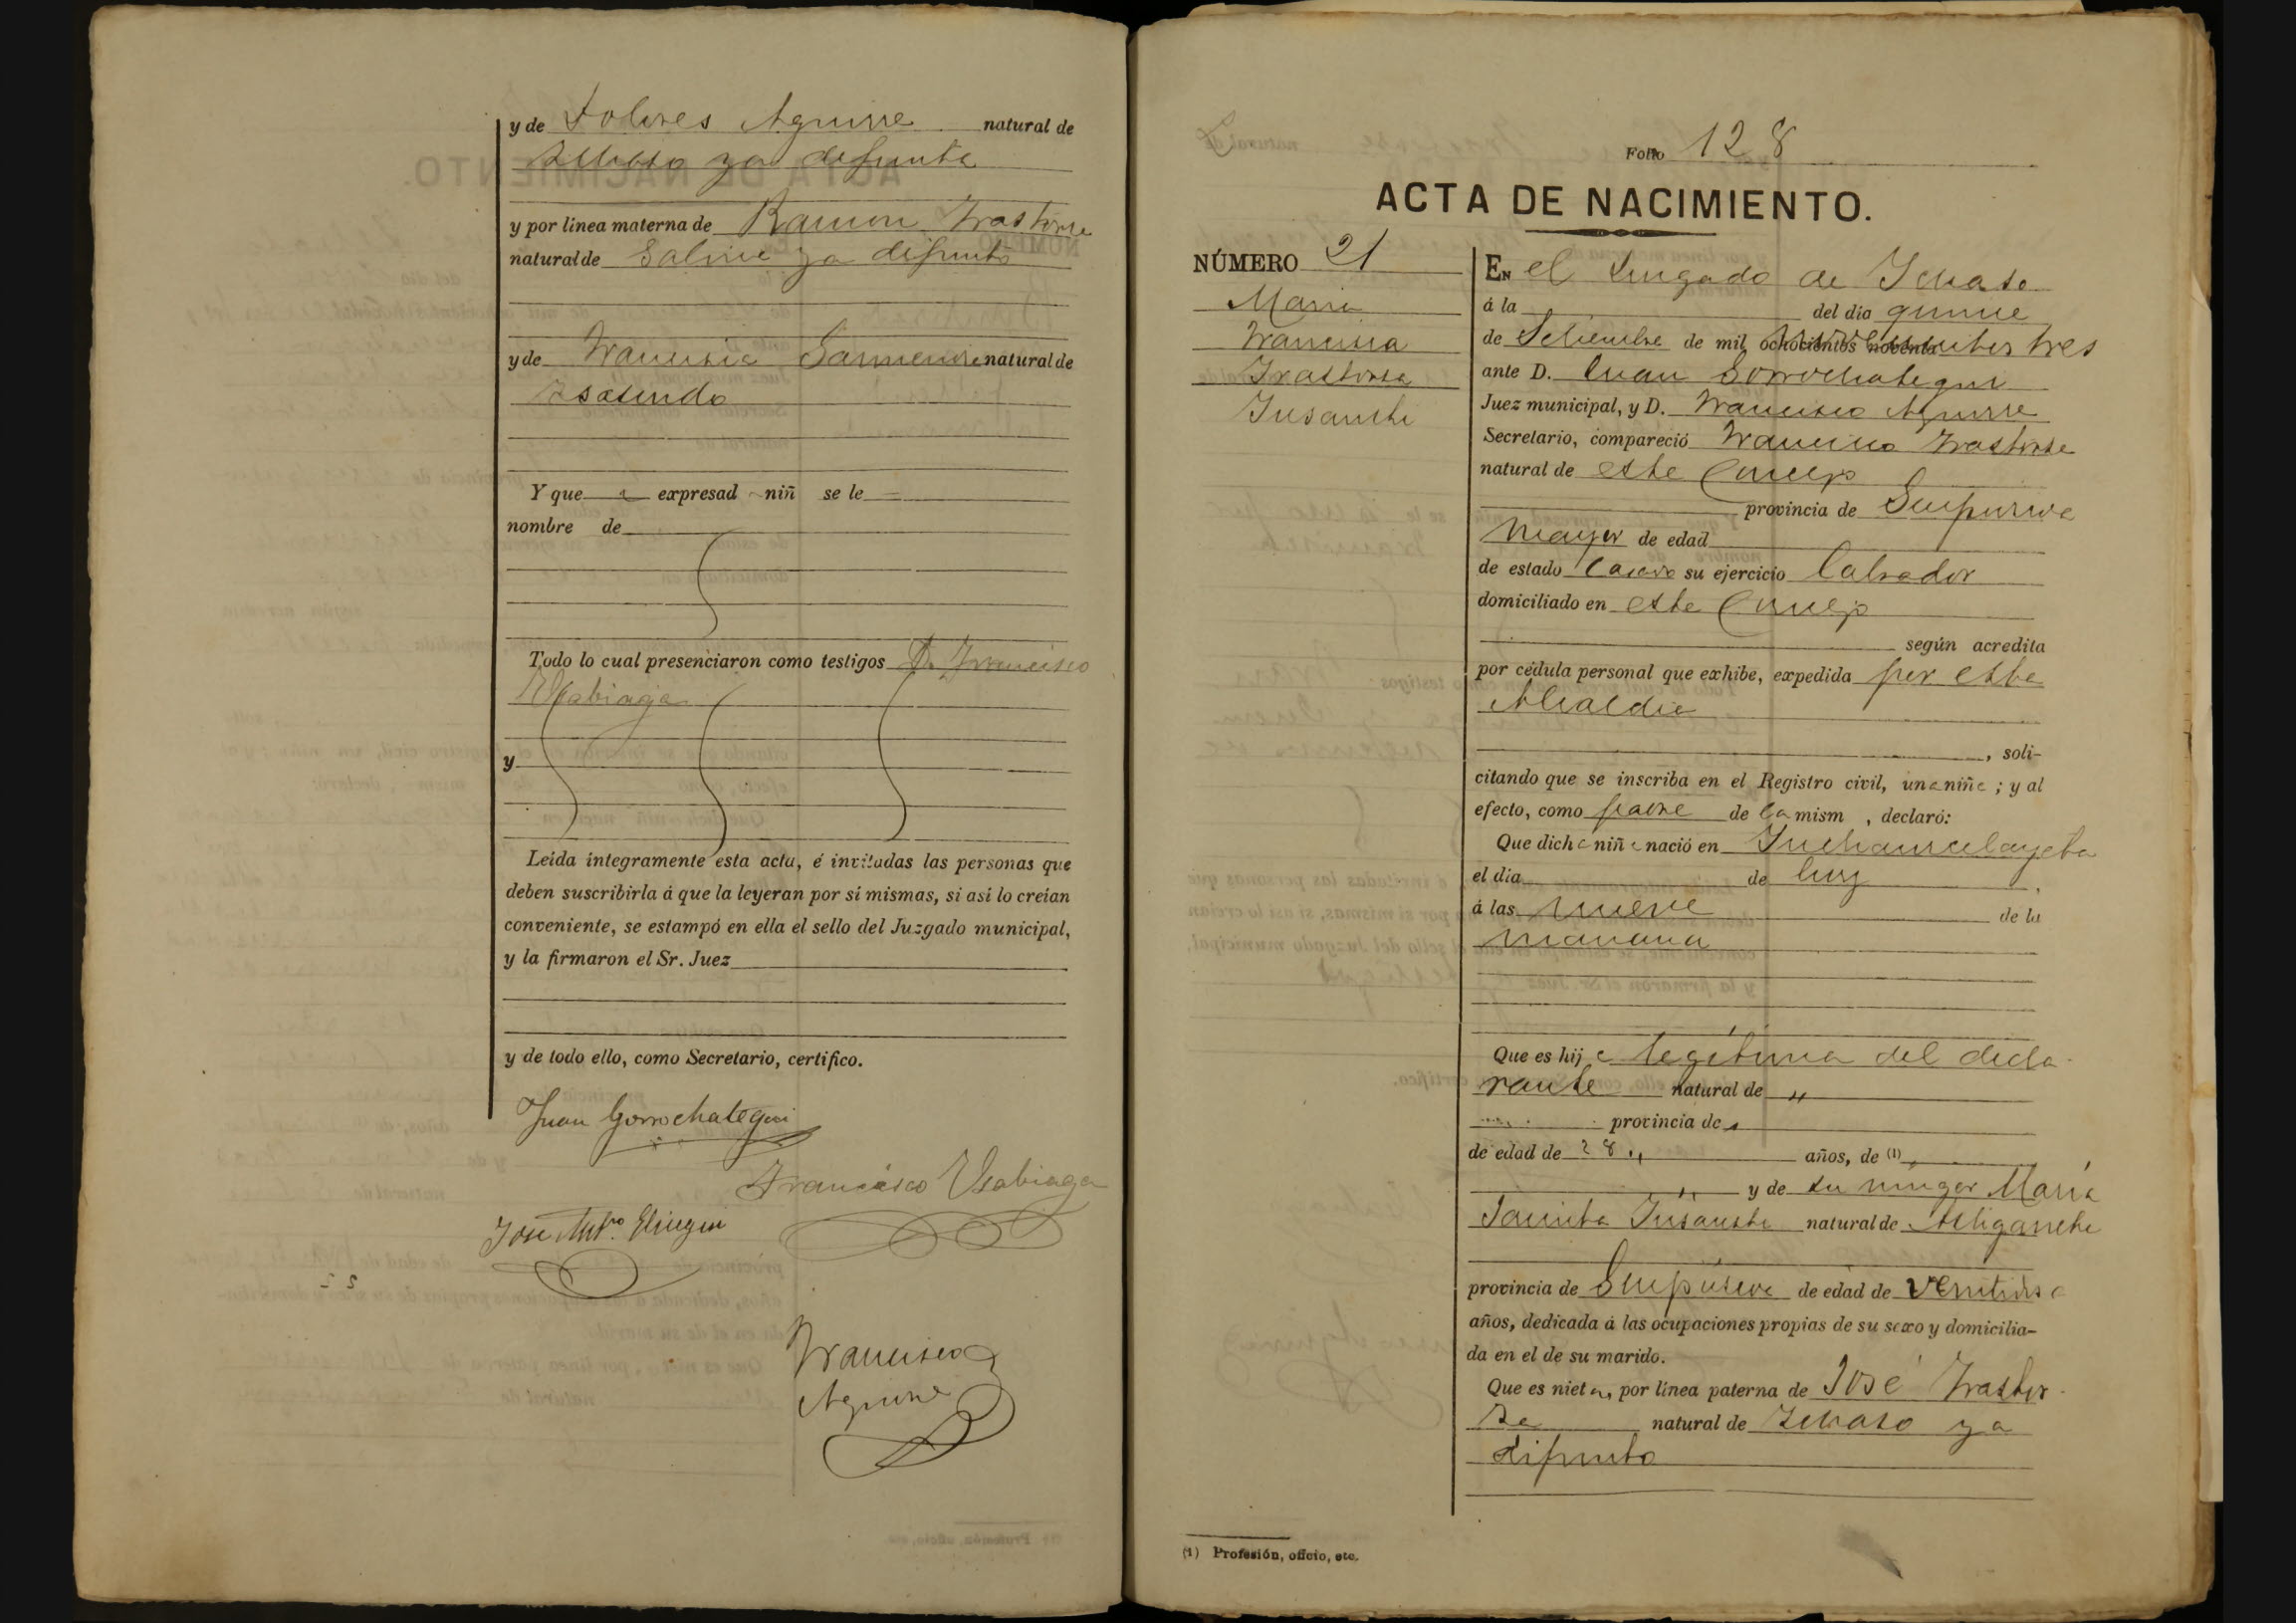 y de Dolores Aguirre natural de
Ichaso ya difunta
y por línea materna de Ramon Irastorza
natural de ya difunto
y de Francisca natural de
Isasondo
Y que a expresad niñ se le
nombre de
Todo lo cual presenciaron como testigos D. Francisco
Usabiaga
y
Leída íntegramente esta acta, é invitadas las personas que
deben suscribirla á que la leyeran por sí mismas, si así lo creían
conveniente, se estampó en ella el sello del Juzgado municipal,
y la firmaron el Sr. Juez
y de todo ello, como Secretario, certifico.
Juan Gorrochategui
Francisco Usabiaga
José Antº.
Francisco
Aguirre
Folio 128
ACTA DE NACIMIENTO.
NÚMERO 21
Maria
Francisca
Irastorza
Insausti
EN el Juzgado de Ichaso
á la del día quince
de Setiembre de mil ochocientos noventa novecientos tres
ante D. Juan Gorrochategui
Juez municipal, y D. Francisco Aguirre
Secretario, compareció Francisco Irastorza
natural de este Concejo
provincia de Guipuzcoa
mayor de edad
de estado casado su ejercicio labrador
domiciliado en este Concejo
según acredita
por cédula personal que exhibe, expedida por esta
Alcaldia
, soli-
citando que se inscriba en el Registro civil, una niña ; y al
efecto, como padre de la mism , declaró:
Que dicha niña nació en
el día de hoy
á las nueve de la
mañana
Que es hija legítima del decla-
rante natural de "
provincia de "
de edad de 28 " años, de (1) "
" y de su muger María
Insausti natural de Astigarreta
provincia de Guipúzcoa de edad de
años, dedicada á las ocupaciones propias de su sexo y domicilia-
da en el de su marido.
Que es nieta, por línea paterna de José Irastor-
za natural de Ichaso ya
difunto
(1) Profesión, oficio, etc.